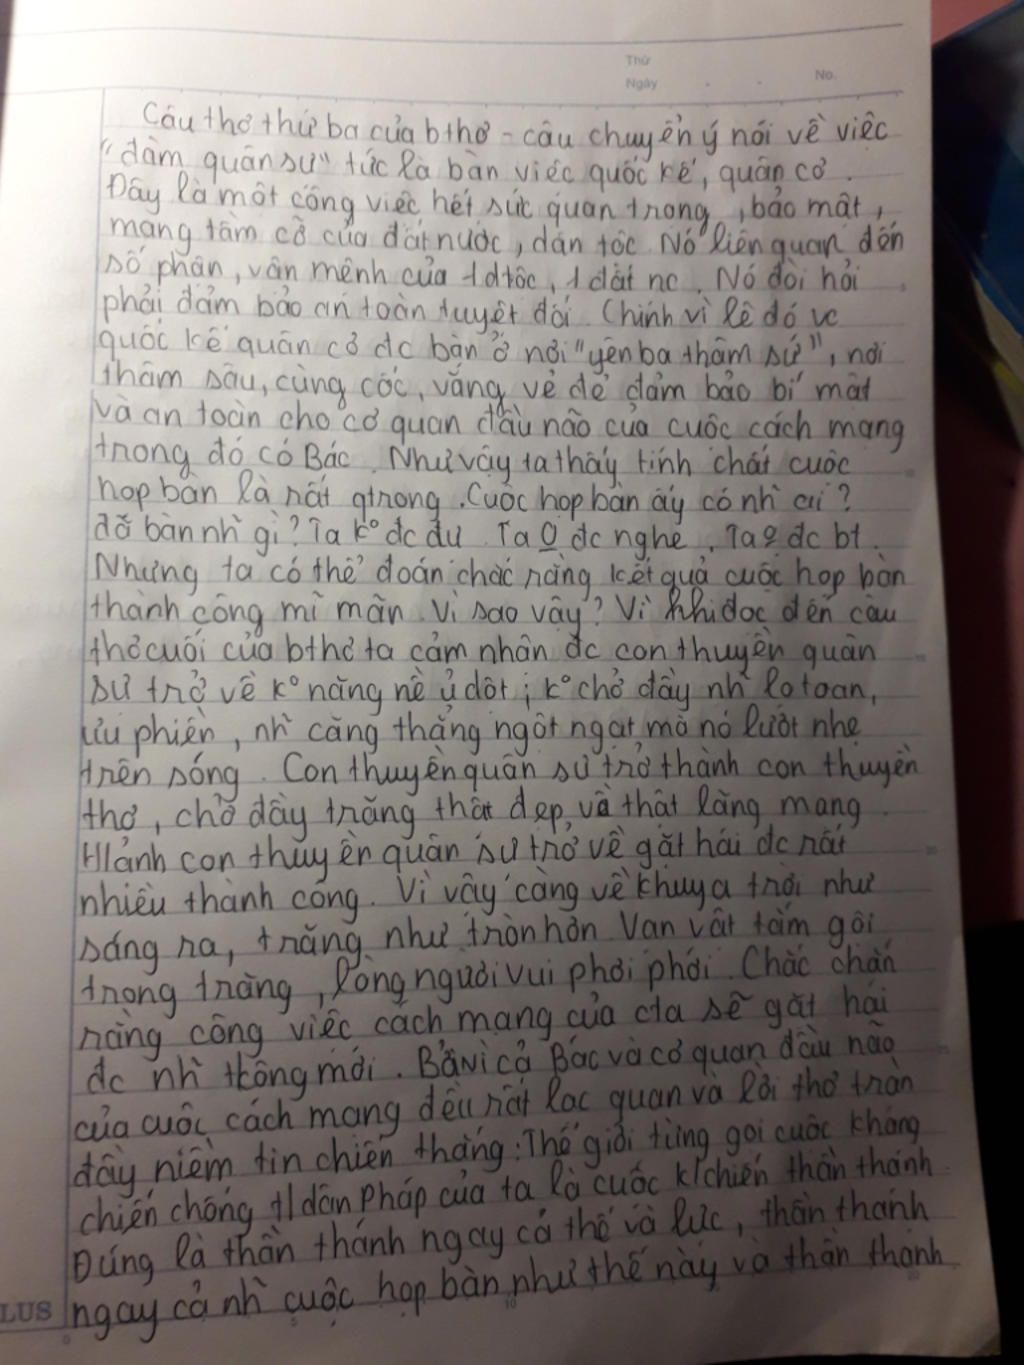 Thứ
Ngày - - No.
Câu thơ thứ ba của bthơ - câu chuyển ý nói về việc
"đàm quân sự" tức là bàn việc quốc kế, quân cơ.
Đây là một công việc hết sức quan trọng, bảo mật,
mang tầm cỡ của đất nước, dân tộc. Nó liên quan đến
số phận, vận mệnh của 1 dtộc, 1 đất nc. Nó đòi hỏi
phải đảm bảo an toàn tuyệt đối. Chính vì lẽ đó vc
quốc kế quân cơ đc bàn ở nơi "yên ba thâm xứ", nơi
thâm sâu, cùng cốc, vắng vẻ để đảm bảo bí mật
và an toàn cho cơ quan đầu não của cuộc cách mạng
trong đó có Bác. Như vậy ta thấy tính chất cuộc
họp bàn là rất qtrọng. Cuộc họp bàn ấy có nh~ ai?
đã bàn nh~ gì? Ta k° đc dự. Ta đc nghe. Ta đc bt.
Nhưng ta có thể đoán chắc rằng kết quả cuộc họp bàn
thành công mĩ mãn. Vì sao vậy? Vì khi đọc đến câu
thơ cuối của bthơ ta cảm nhận đc con thuyền quân
sự trở về k° nặng nề ủ dột; k° chở đầy nh~ lo toan,
ưu phiền, nh~ căng thẳng ngột ngạt mà nó lướt nhẹ
trên sóng. Con thuyền quân sự trở thành con thuyền
thơ, chở đầy trăng thật đẹp và thật lãng mạng.
H/ảnh con thuyền quân sự trở về gặt hái đc rất
nhiều thành công. Vì vậy càng về khuya trời như
sáng ra, trăng như tròn hơn. Vạn vật tắm gội
trong trăng, lòng người vui phơi phới. Chắc chắn
rằng công việc cách mạng của cta sẽ gặt hái
đc nh~ tcông mới. Bởi vì cả Bác và cơ quan đầu não
của cuộc cách mạng đều rất lạc quan và lời thơ tràn
đầy niềm tin chiến thắng. Thế giới từng gọi cuộc kháng
chiến chống t/dân Pháp của ta là cuộc k/chiến thần thánh.
Đúng là thần thánh ngay cả thế và lực, thần thánh
ngay cả nh~ cuộc họp bàn như thế này và thần thánh
LUS